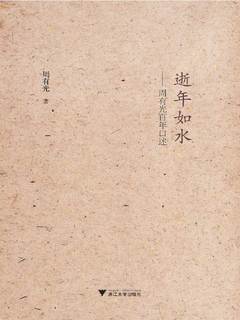 逝年如水
——周有光百年口述
周有光 著
浙江大学出版社